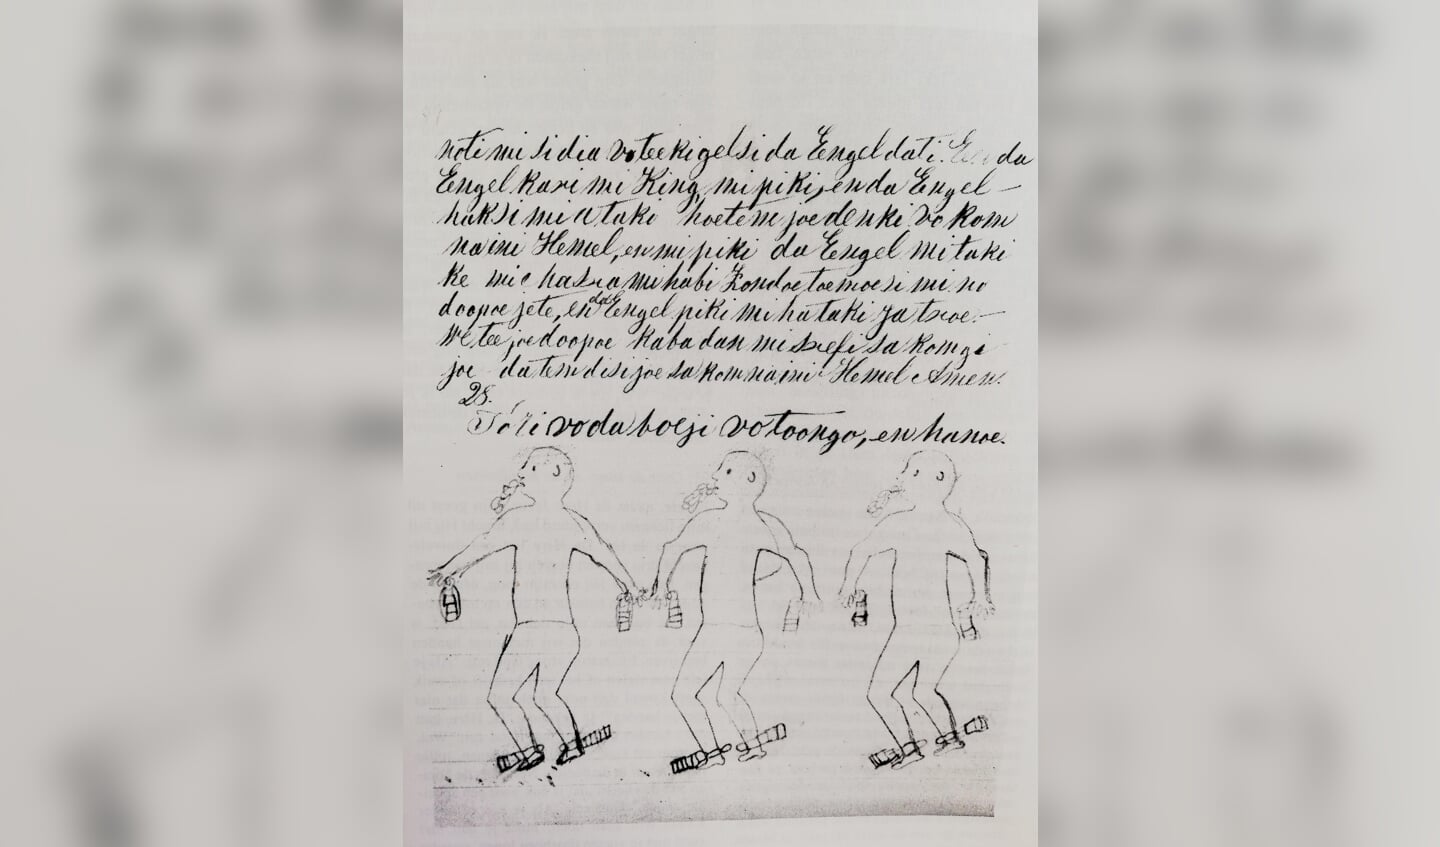 noti mi si dia vo teeki gelsi da Engel dati. da
Engel kari mi King, mi piki, en da Engel
haksi mi a taki hoetem joe denki vo kom
na ini Hemel, en mi piki da Engel mi taki
ke mi habi Zondoe toemoesi mi no
doopoe jete, en da Engel piki mi ha taki ja troe.
We tee joe doopoe kaba dan mi srefi sa kom gi
joe da tem disi joe sa kom na ini Hemel Amen.
28.
Tóri vo da boeji vo toongo, en hanoe.